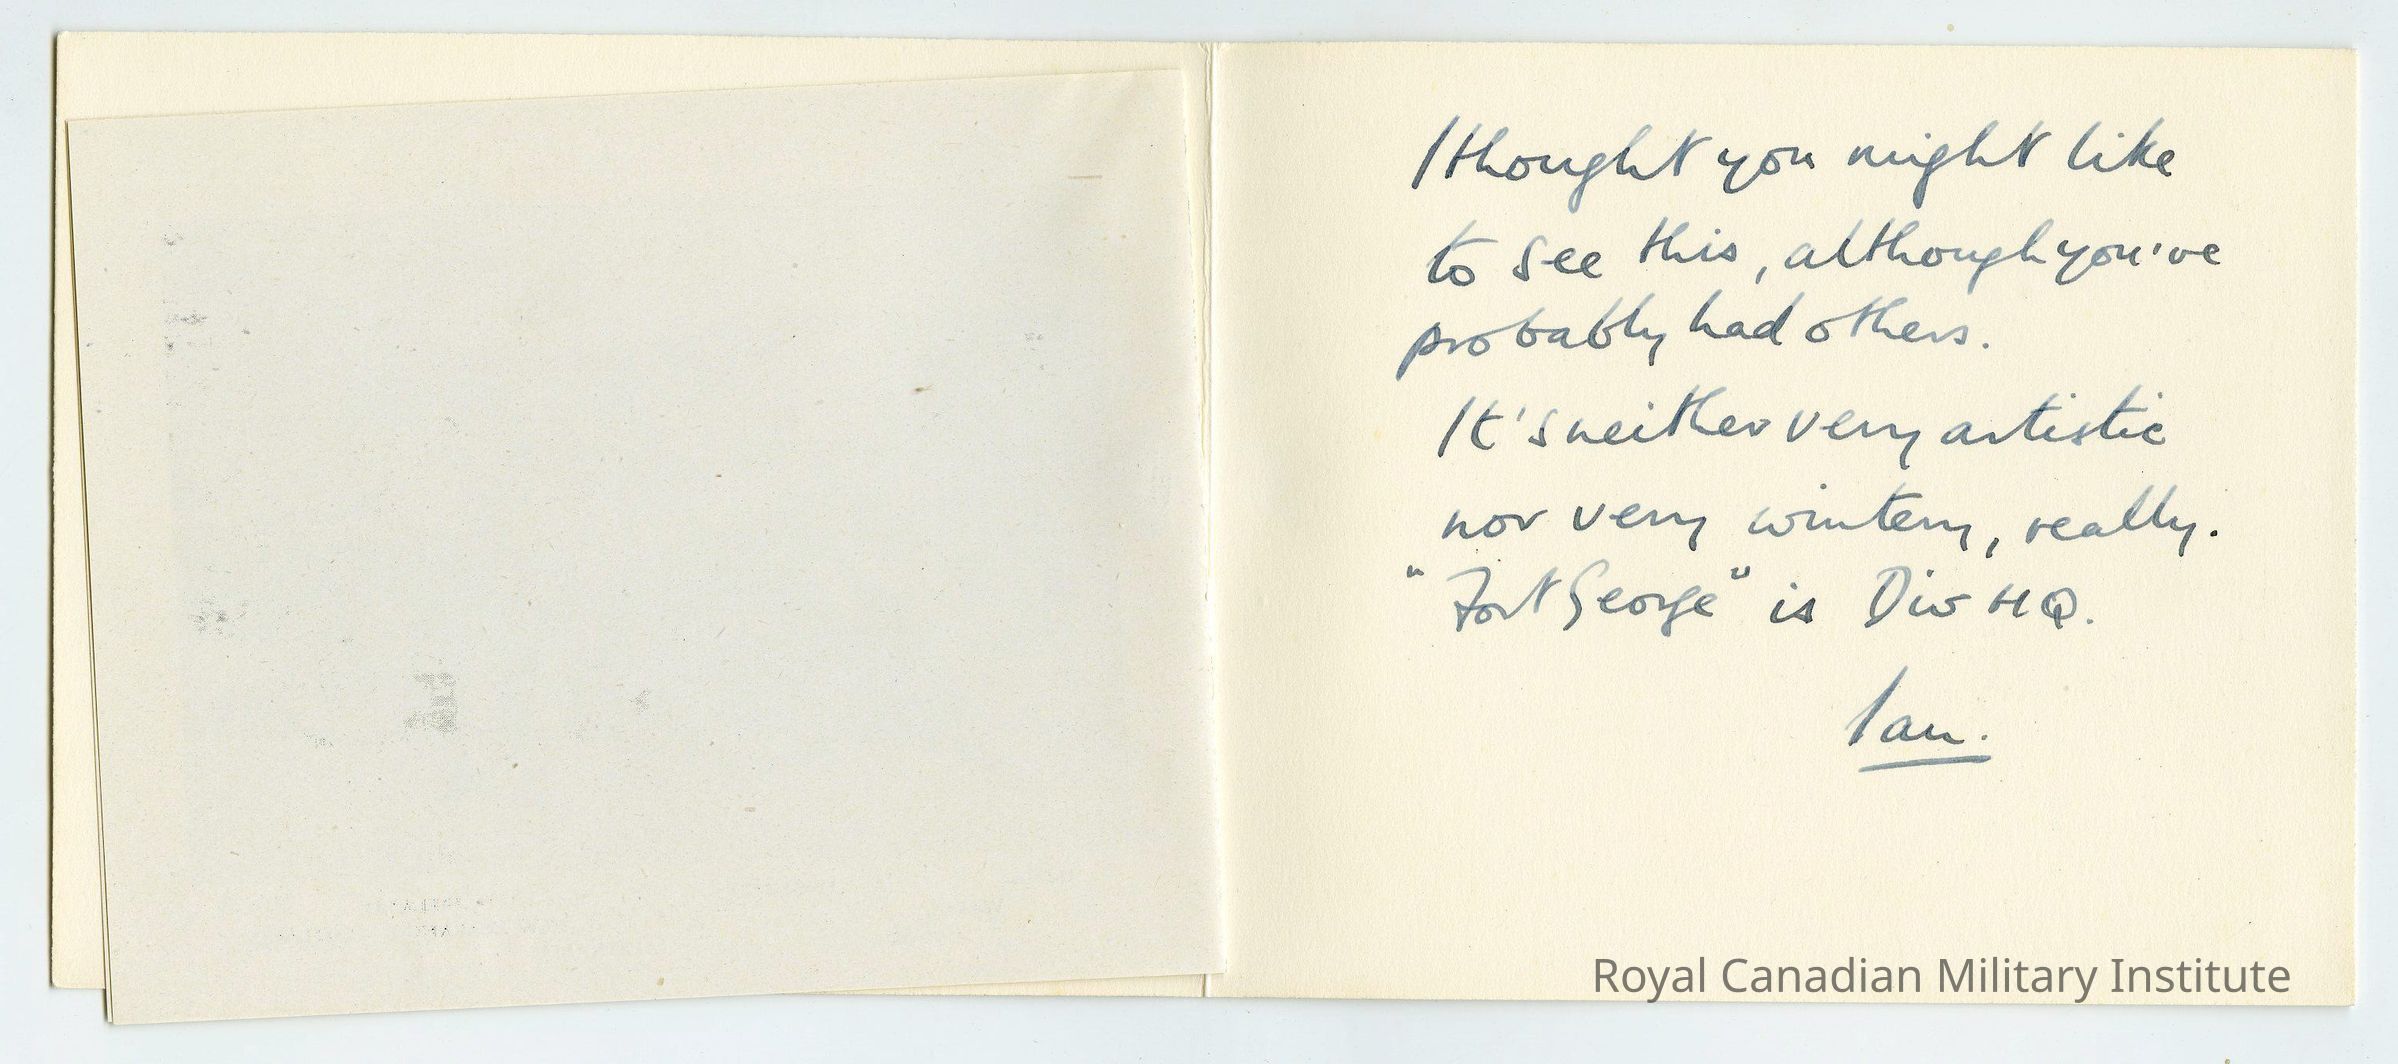 I thought you might like
to see this, although you've
probably had others.
It's neither very artistic
nor very wintery, really.
"Fort George" is Div HQ.
Ian.
Royal Canadian Military Institute